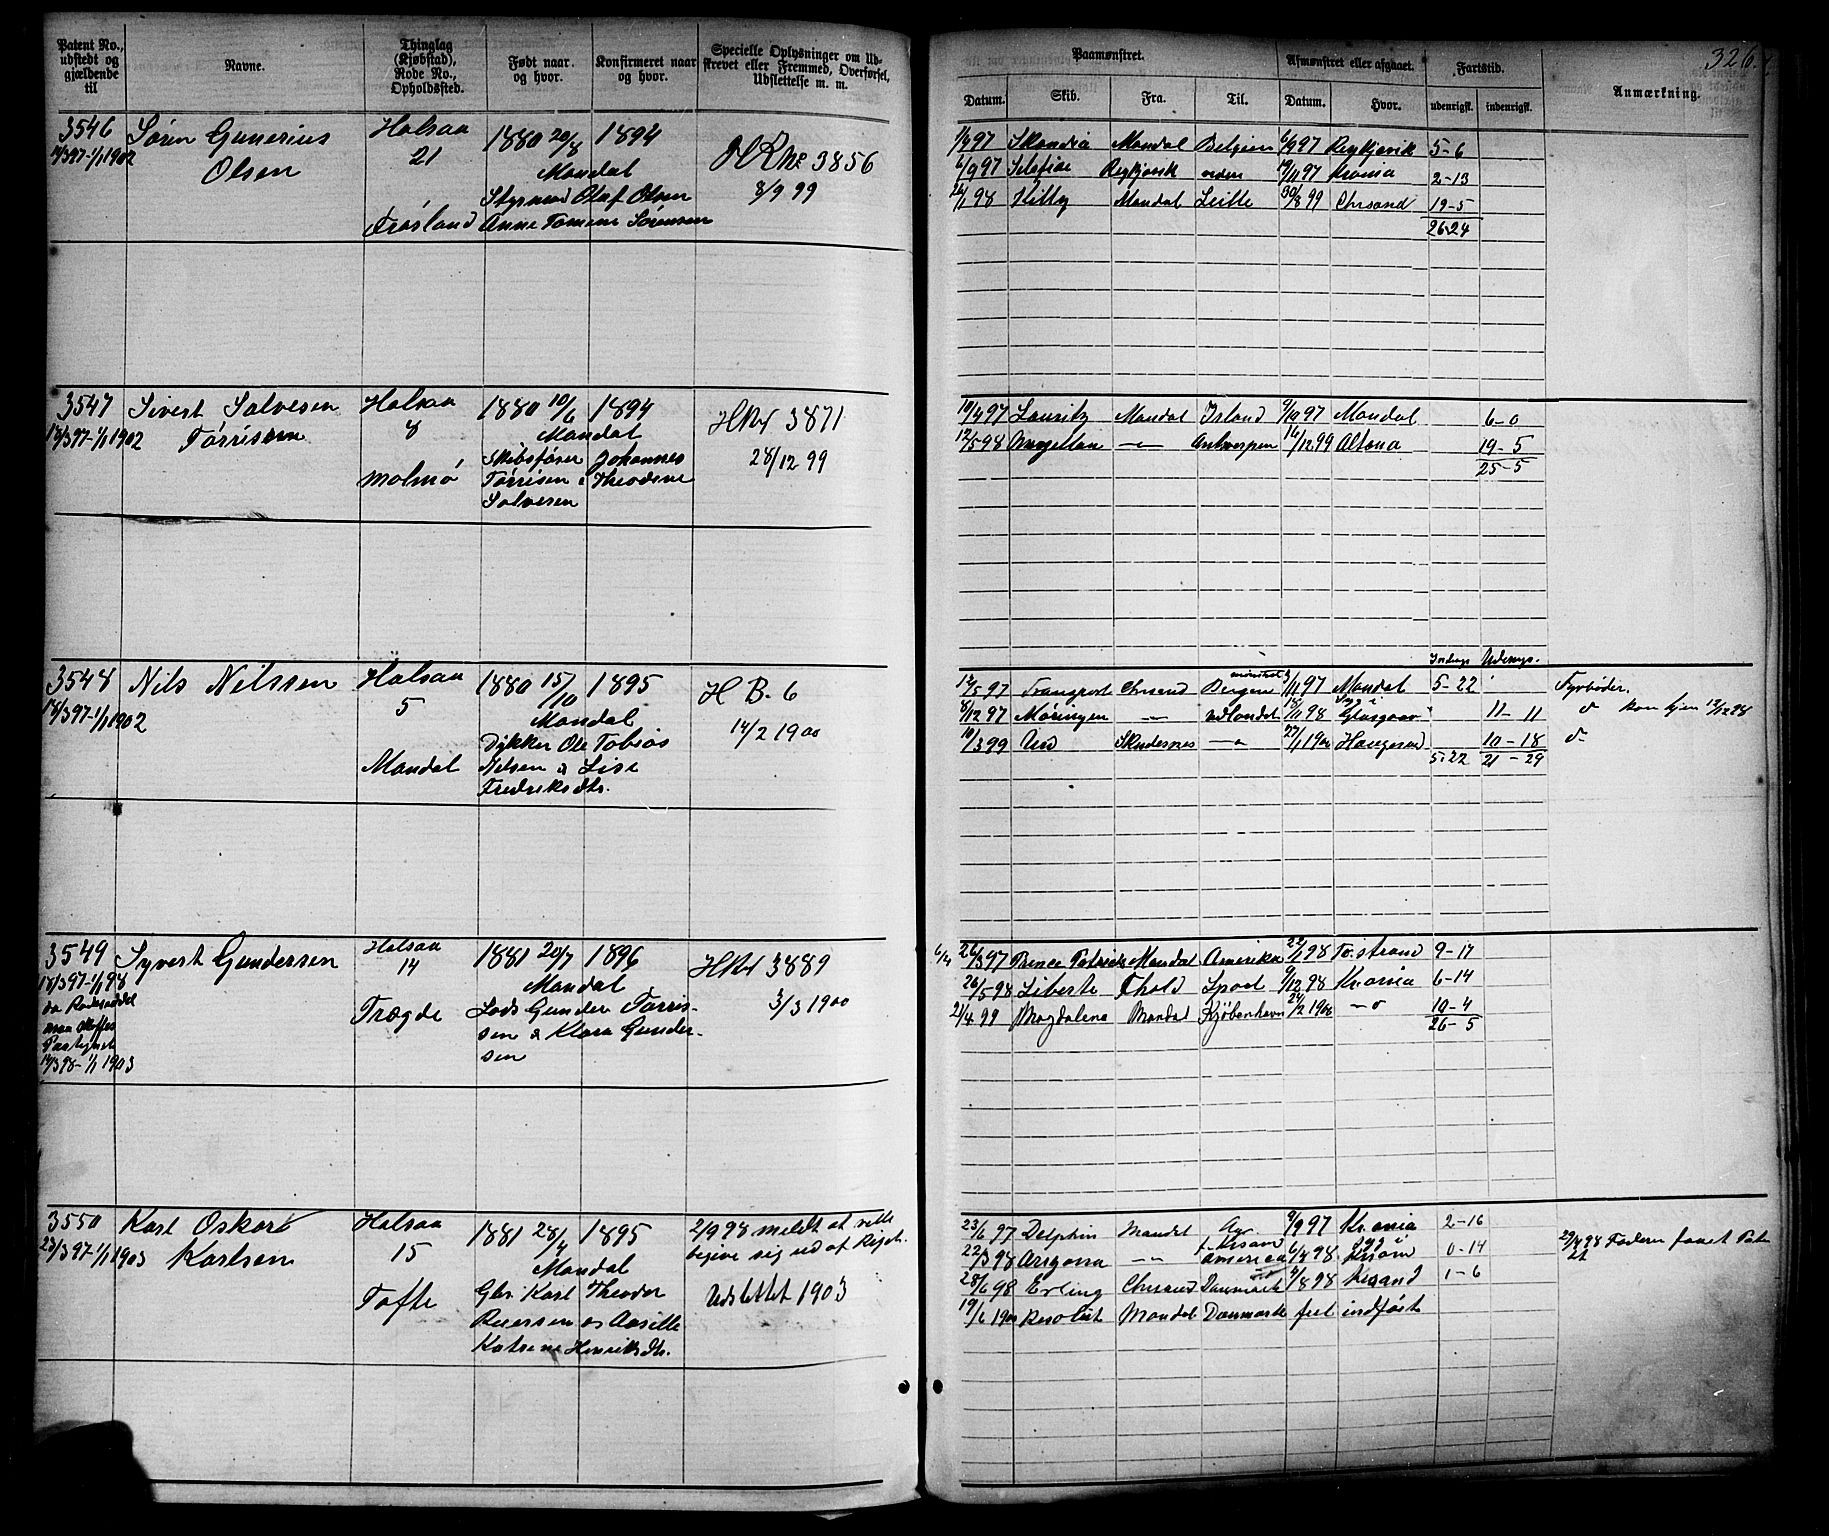 326.
Patent No., udstedt og gjældende til
Navne.
Thinglag (Kjøbstad), Rode No., Opholdssted.
Født naar og hvor.
Konfirmeret naar og hvor.
Specielle Oplysninger om Udskrevet eller Fremmed, Overførsel, Udslettelse m. m.
Paamønstret.
Afmønstret eller afgaaet.
Fartstid.
Anmærkning.
Datum. Skib. Fra. Til. Datum. Hvor. udenrigsk. indenrigsk.
3546 Søren Gunerius Halsaa 1880 20/8 1894
14/3 97-1/1 1902 Olsen 21 Mandal HR No 3856
Styrmand Olaf Olsen 8/9 99
Frøsland Anne Tomene Sørensen
1/4 97 Skandia Mandal Belgien 6/9 97 Reykjavik 5-6
6/9 97 Reykjavik 19/11 97 2-13
26/1 98 Kitty Mandal Leitte 30/8 99 Chrsand 19-5
26-24
3547 Sivert Salvesen Halsaa 1880 10/6 1894 HR No 3871
18/3 97-1/1 1902 Tørrisen 8 Mandal
Skibsfører Johannes 28/12 99
Malmø Tørrisen & Theodine
Salvesen
19/4 97 Lauritz Mandal Island 9/10 97 Mandal 6-0
12/5 98 Magellan -"- Antwerpen 16/12 99 Altona 19-5
25-5
3548 Nils Nilssen Halsaa 1880 15/10 1895 H B. 6
18/3 97-1/1 1902 5 Mandal 14/2 1900
Dykker Ole Tobias
Mandal Nilsen & Lise
Fredriksdtr.
Indenrgs Udenrgs.
12/5 97 Transport Chrsand Bergen 3/11 97 Mandal 5-22 Fyrbøder.
8/12 97 Møringen -"- udlandet 18/11 98 Glasgow 11-11
10/3 99 Urd Skudesnes -"- 27/1 1900 Haugesund 10-18
5-22 21-29
3549 Syvert Gundersen Halsaa 1881 20/7 1896 HR No 3889
18/3 97-1/1 98 14 Mandal 3/3 1900
Lods Gunder Tørris-
Trægde sen & Klara Gunder-
sen
14/3 98-1/1 1903
26/3 97 Prince Patrick Mandal Amerika 22/1 98 9-17
26/5 98 Liberte Fhald 9/12 98 Kr.ania 6-14
2/4 99 Magdalena Mandal Kjøbenhavn 24/2 1900 -"- 10-4
26-5
3550 Karl Oskar Halsaa 1881 28/4 1895 2/9 98 meldt at ville
23/3 97-1/1 1903 Karlsen 15 Mandal begive sig ud af Riget.
Gbr. Karl Theodor
Tofte Reiersen og Aasille Udslettet 1903
Katrine Henriksdtr.
23/6 97 Delphin Mandal 9/9 97 Kr.ania 2-16
22/3 98 Arizona -"- Amerika 6/4 98 0-14
28/6 98 Erling Chrsand Danmark 5/8 98 1-6
19/6 1900 Resolut Mandal Danmark feil indført